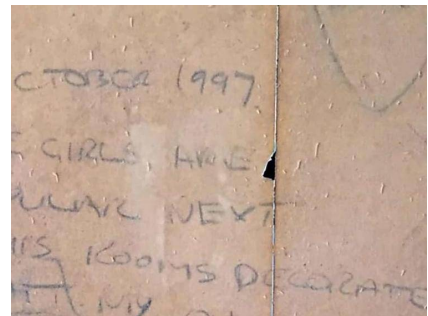 CTOBER 1997
E GIRLS ARE
ULAR NEXT
HIS ROOMS DECORATE
MY